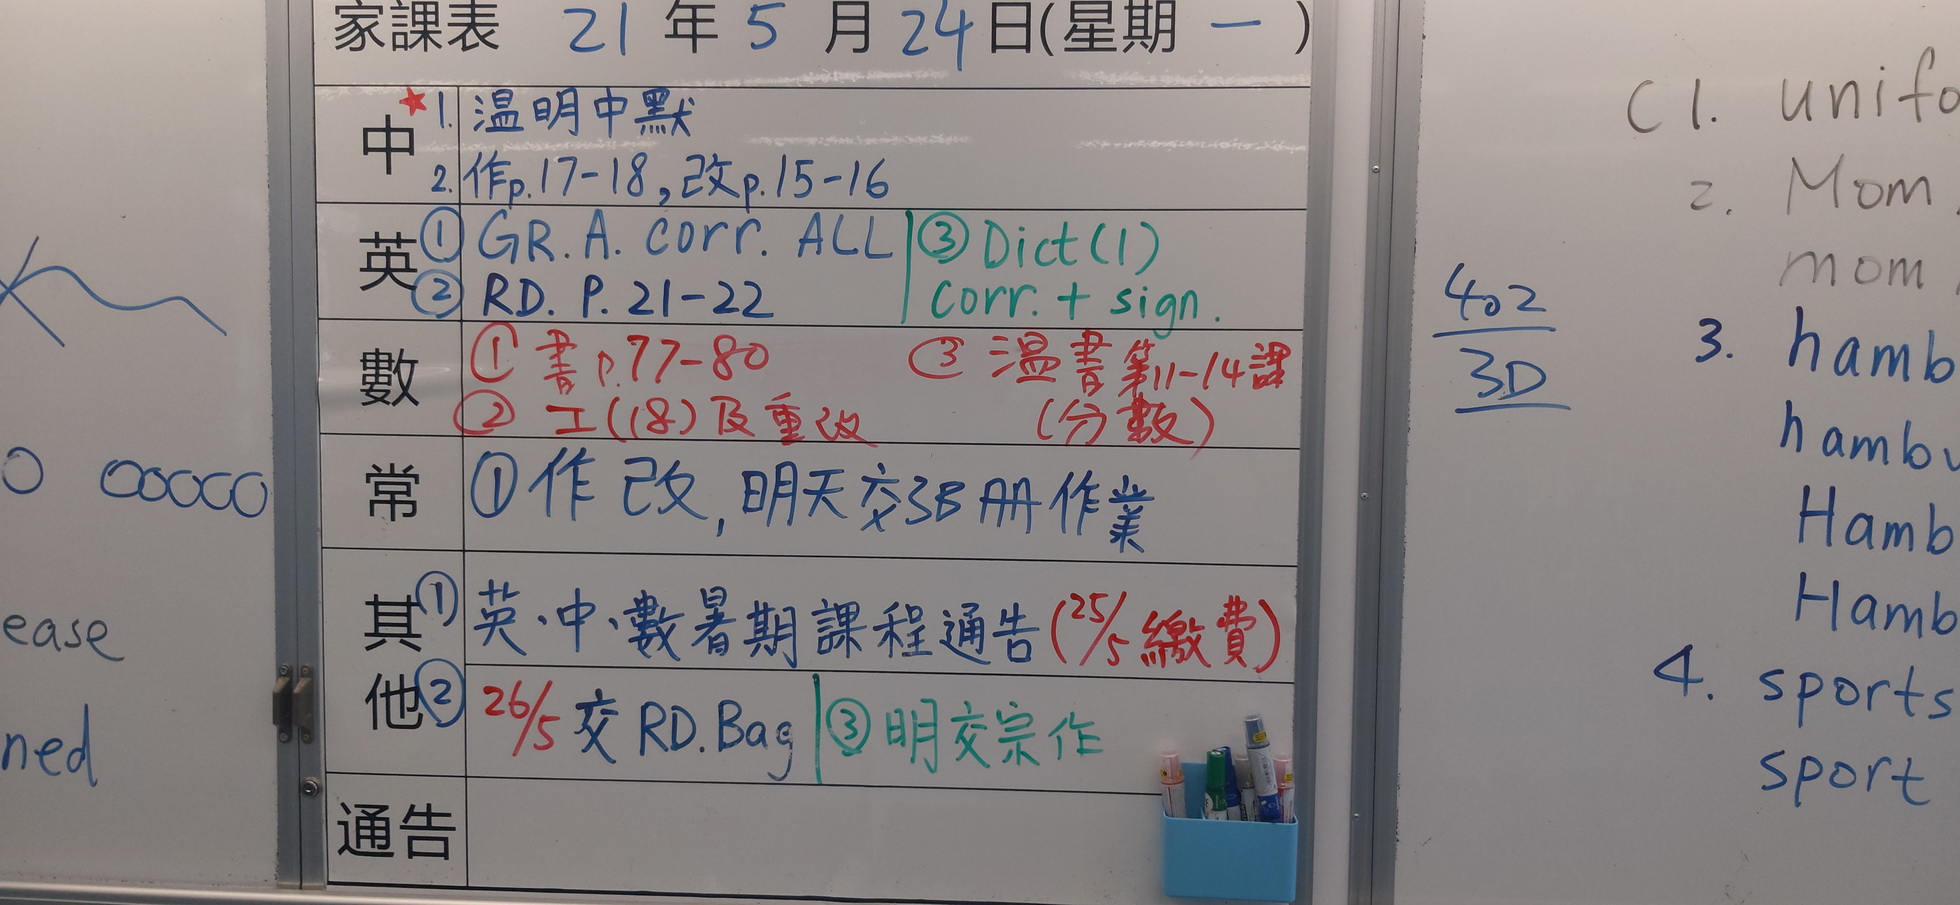 家課表 21年5月24日(星期一)
中
★1. 温明中默
2. 作p.17-18,改p.15-16
英
① GR. A. corr. ALL
② RD. P. 21-22
③ Dict(1)
corr. + sign.
數
① 書p.77-80
② 工(18)及重改
③ 温書第11-14課
(分數)
常
① 作改,明天交3B冊作業
其他
① 英、中、數暑期課程通告(25/5繳費)
② 26/5交RD.Bag
③ 明交宗作
通告
ease
ned
402
3D
C 1. unifo
2. Mom
mom
3. hamb
hambu
Hamb
Hamb
4. sports
sport